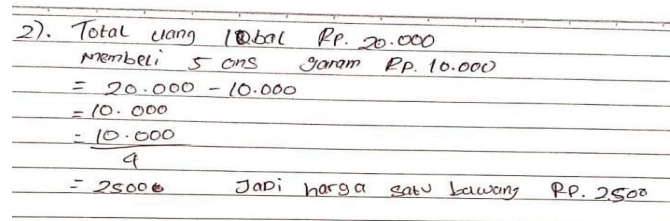 2). Total uang Iqbal Rp. 20.000
Membeli 5 ons garam Rp. 10.000
= 20.000 - 10.000
= 10.000
= 10.000
4
= 2500 Jadi harga satu bawang Rp. 2.500